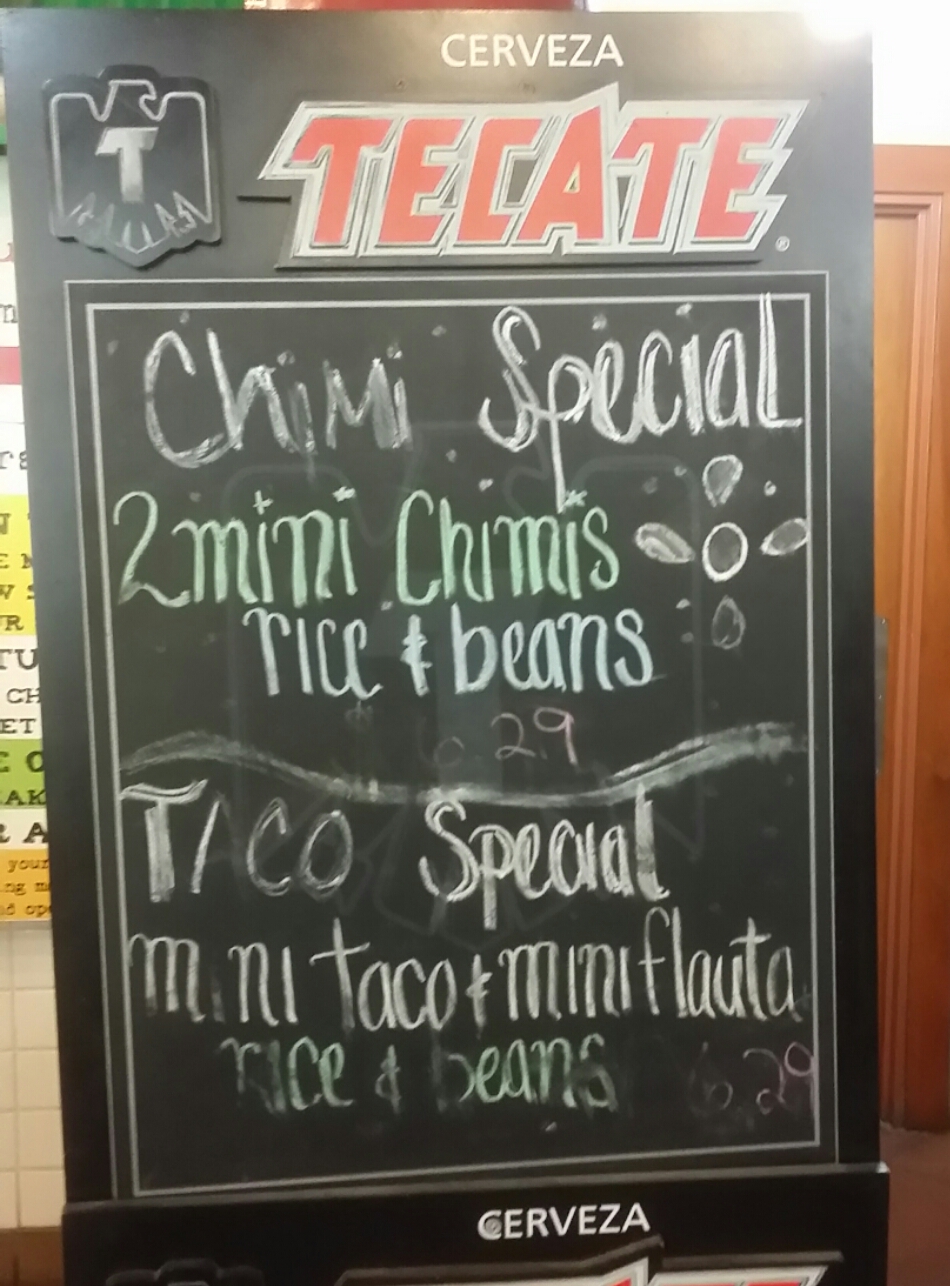 CERVEZA
T
TECATE®
Chimi Special
2 mini Chimis
rice & beans
6.29
TACO Special
mini taco & mini flauta
rice & beans 6.29
CERVEZA